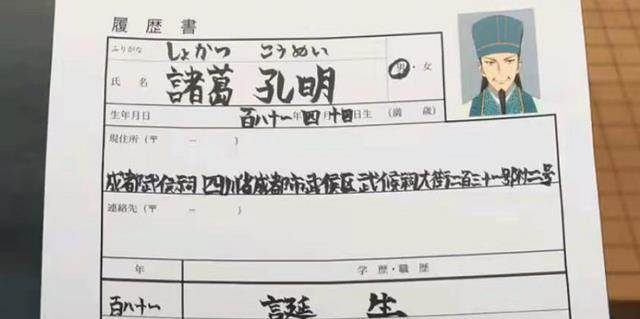 履歴書
ふりがな しょかつ こうめい
氏名 諸葛 孔明 男・女
生年月日 百八十一年四月十日生 (満 歳)
現住所 (〒 − )
成都武侯祠 四川省成都市武侯区武候祠大街二百三十一号附二号
連絡先 (〒 − )
年 学歴・職歴
百八十一 誕生